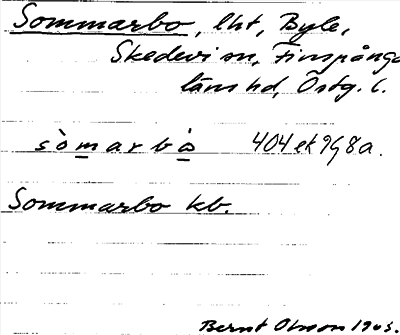 Sommarbo, lht, Byle,
Skedevi sn, Finspånga
läns hd, Östg. l.
sòmarbå 404 ek 98a.
Sommarbo kb.
Bernt Olsson 1963.